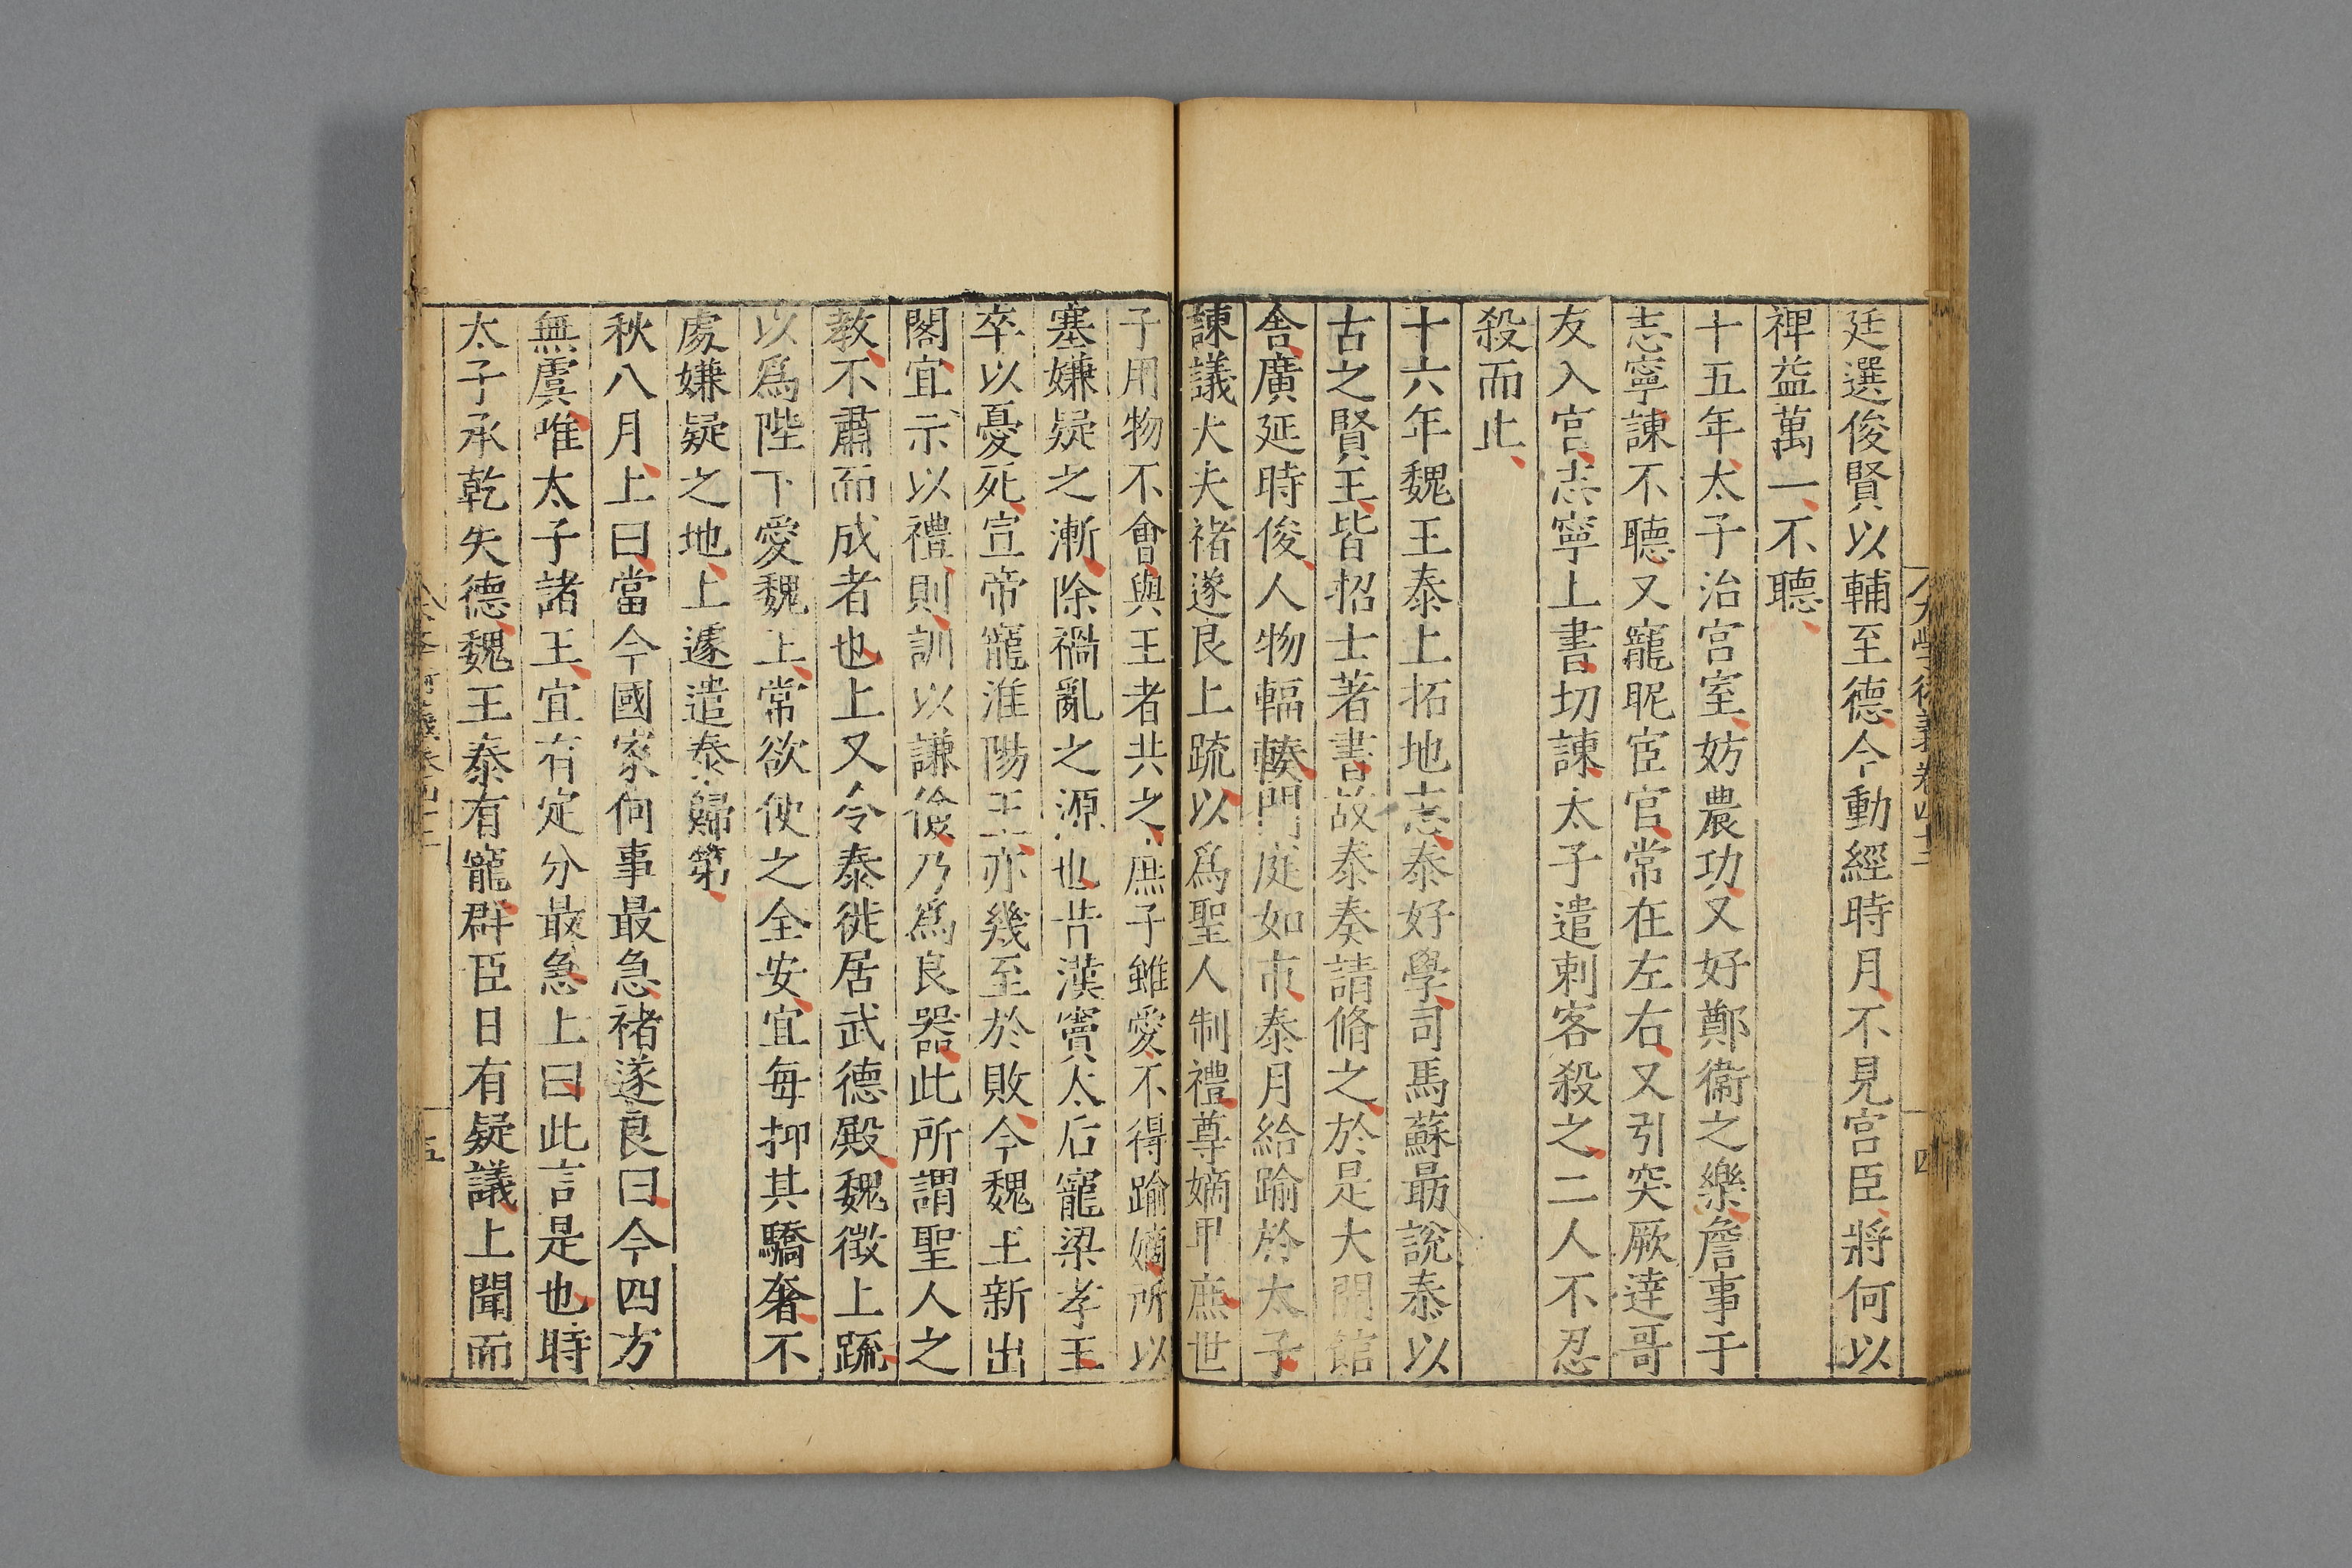 廷選俊賢以輔至德今動經時月不見宮臣將何以
裨益萬一不聽
十五年太子治宮室妨農功又好鄭衞之樂詹事于
志寧諫不聽又寵昵宦官常在左右又引突厥達哥
友入宮志寧上書切諫太子遣刺客殺之二人不忍
殺而止
十六年魏王泰上括地志泰好學司馬蘇勗說泰以
古之賢王皆招士著書故泰奏請脩之於是大開館
舎廣延時俊人物輻輳門庭如市泰月給踰於太子
諫議大夫褚遂良上疏以爲聖人制禮尊嫡卑庶世
子用物不會與王者共之庶子雖愛不得踰嫡所以
塞嫌疑之漸除禍亂之源也昔漢竇太后寵梁孝王
卒以憂死宣帝寵淮陽王亦幾至於敗今魏王新出
閣宜示以禮則訓以謙儉乃爲良器此所謂聖人之
教不肅而成者也上又令泰徙居武德殿魏徵上疏
以爲陛下愛魏王常欲使之全安宜每抑其驕奢不
處嫌疑之地上遽遣泰歸第
秋八月上曰當今國家何事最急褚遂良曰今四方
無虞唯太子諸王宜有定分最急上曰此言是也時
太子承乾失德魏王泰有寵群臣日有疑議上聞而